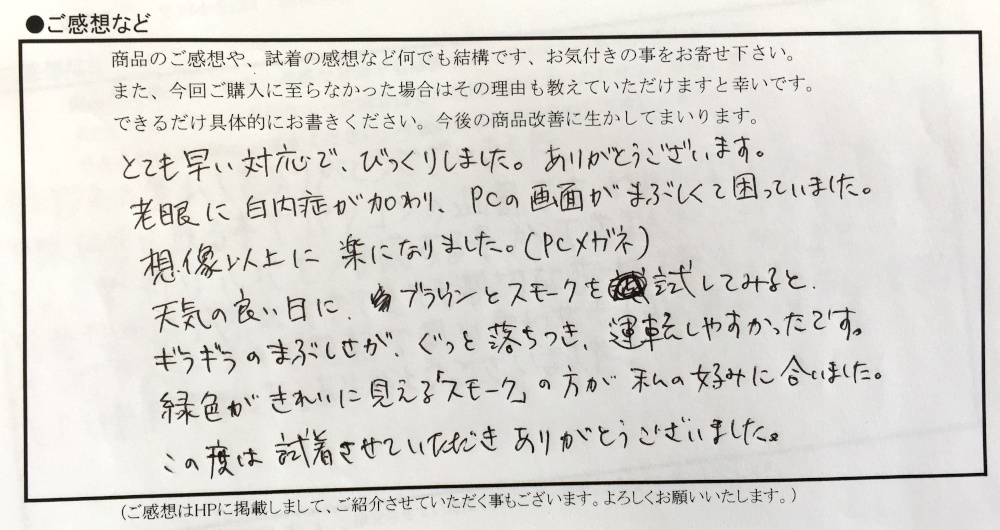 ●ご感想など
商品のご感想や、試着の感想など何でも結構です、お気付きの事をお寄せ下さい。
また、今回ご購入に至らなかった場合はその理由も教えていただけますと幸いです。
できるだけ具体的にお書きください。今後の商品改善に生かしてまいります。
とても早い対応で、びっくりしました。ありがとうございます。
老眼に白内症が加わり、PCの画面がまぶしくて困っていました。
想像以上に楽になりました。(PCメガネ)
天気の良い日に、ブラウンとスモークを試してみると、
ギラギラのまぶしせが、ぐっと落ちつき、運転しやすかったです。
緑色がきれいに見える「スモーク」の方が私の好みに合いました。
この度は試着させていただきありがとうございました。
(ご感想はHPに掲載しまして、ご紹介させていただく事もございます。よろしくお願いいたします。)